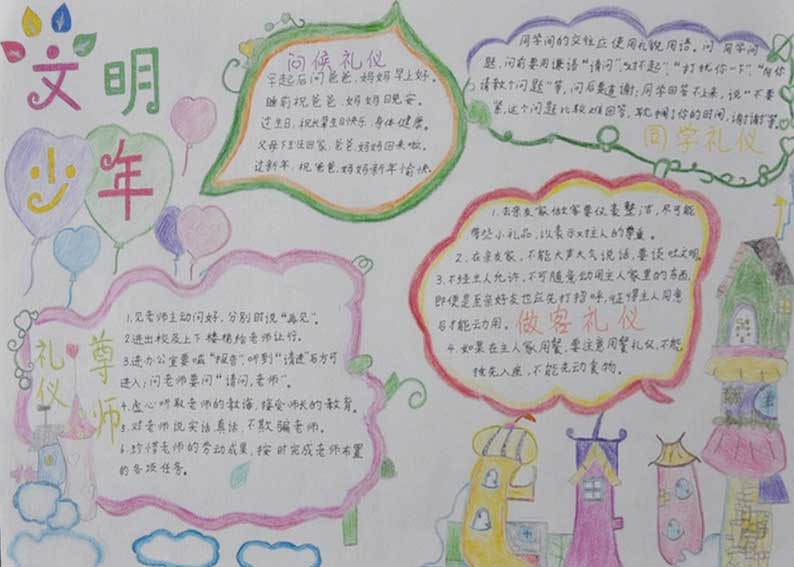 文明
少年
问候礼仪
早起后问爸爸,妈妈早上好。
睡前祝爸爸,妈妈晚安。
过生日,祝长辈生日快乐,身体健康。
父母下班回家,爸爸,妈妈回来啦。
过新年,祝爸爸,妈妈新年愉快
同学间的交往应使用礼貌用语。问同学问
题,问前要用谦语“请问”,“对不起”,“打扰你一下”,
请教个问题”等,问后要道谢;同学回答不上来,说“不要
紧,这个问题比较难回答,耽搁了你的时间,谢谢”等。
同学礼仪
1.去亲友家做客要仪表整洁,尽可能
带些小礼品,以表示对主人的尊重。
2.在亲友家,不能大声大气说话,要谈吐文明
3.不经主人允许,不可随意动用主人家里的东西,
即便是至亲好友也应先打招呼,征得主人同意
后才能动用。
做客礼仪
4.如果在主人家用餐,要注意用餐礼仪,不能
抢先入座,不能先动食物。
尊师
礼仪
1.见老师主动问好,分别时说“再见”。
2.进出校及上下楼梯给老师让行。
3.进办公室要喊“报告”,听到“请进”后方可
进入;问老师要问“请问,老师”。
4.虚心听取老师的教诲,接受师长的教育。
5.对老师说实话真话,不欺骗老师。
6.珍惜老师的劳动成果,按时完成老师布置
的各项任务。